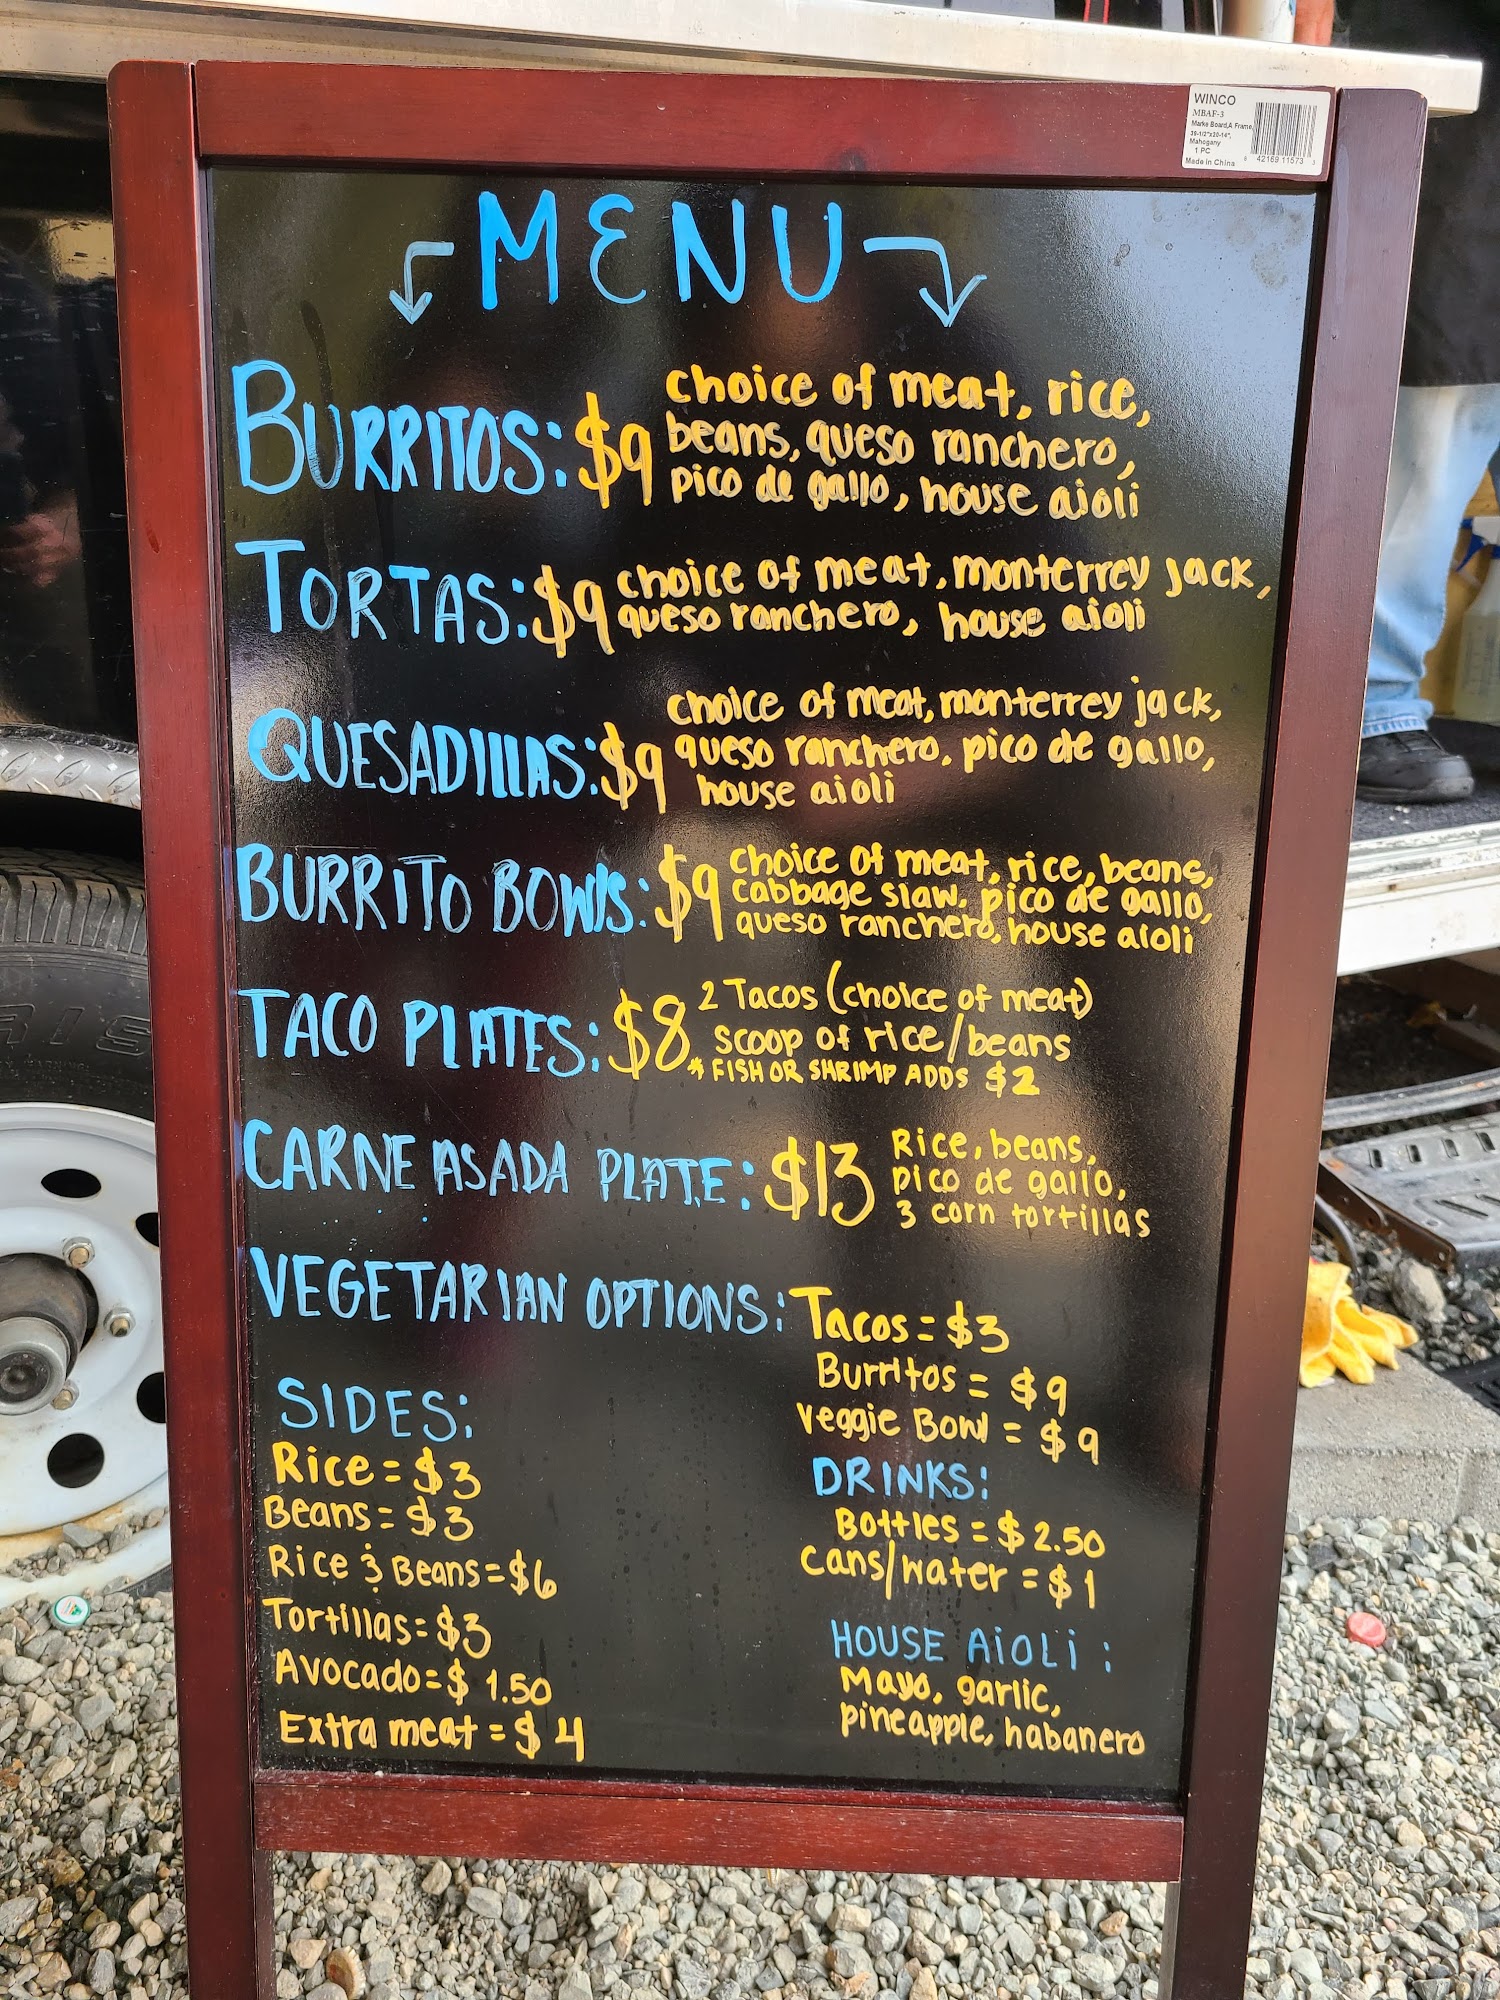 WINCO
MBAF-3
Marke Board,A Frame,
39-1/2"x20-14",
Mahogany
1 PC
Made in China
6 42169 11573 3
MENU
BURRITOS: $9 choice of meat, rice,
beans, queso ranchero,
pico de gallo, house aioli
TORTAS: $9 choice of meat, monterrey jack,
queso ranchero, house aioli
QUESADILLAS: $9 choice of meat, monterrey jack,
queso ranchero, pico de gallo,
house aioli
BURRITO BOWLS: $9 choice of meat, rice, beans,
cabbage slaw, pico de gallo,
queso ranchero, house aioli
TACO PLATES: $8 2 Tacos (choice of meat)
scoop of rice/beans
* FISH OR SHRIMP ADDS $2
CARNE ASADA PLATE: $13 Rice, beans,
pico de gallo,
3 corn tortillas
VEGETARIAN OPTIONS: Tacos = $3
Burritos = $9
Veggie Bowl = $9
SIDES:
Rice = $3
Beans = $3
Rice & Beans = $6
Tortillas = $3
Avocado = $1.50
Extra meat = $4
DRINKS:
Bottles = $2.50
Cans/water = $1
HOUSE AiOLi:
Mayo, garlic,
pineapple, habanero